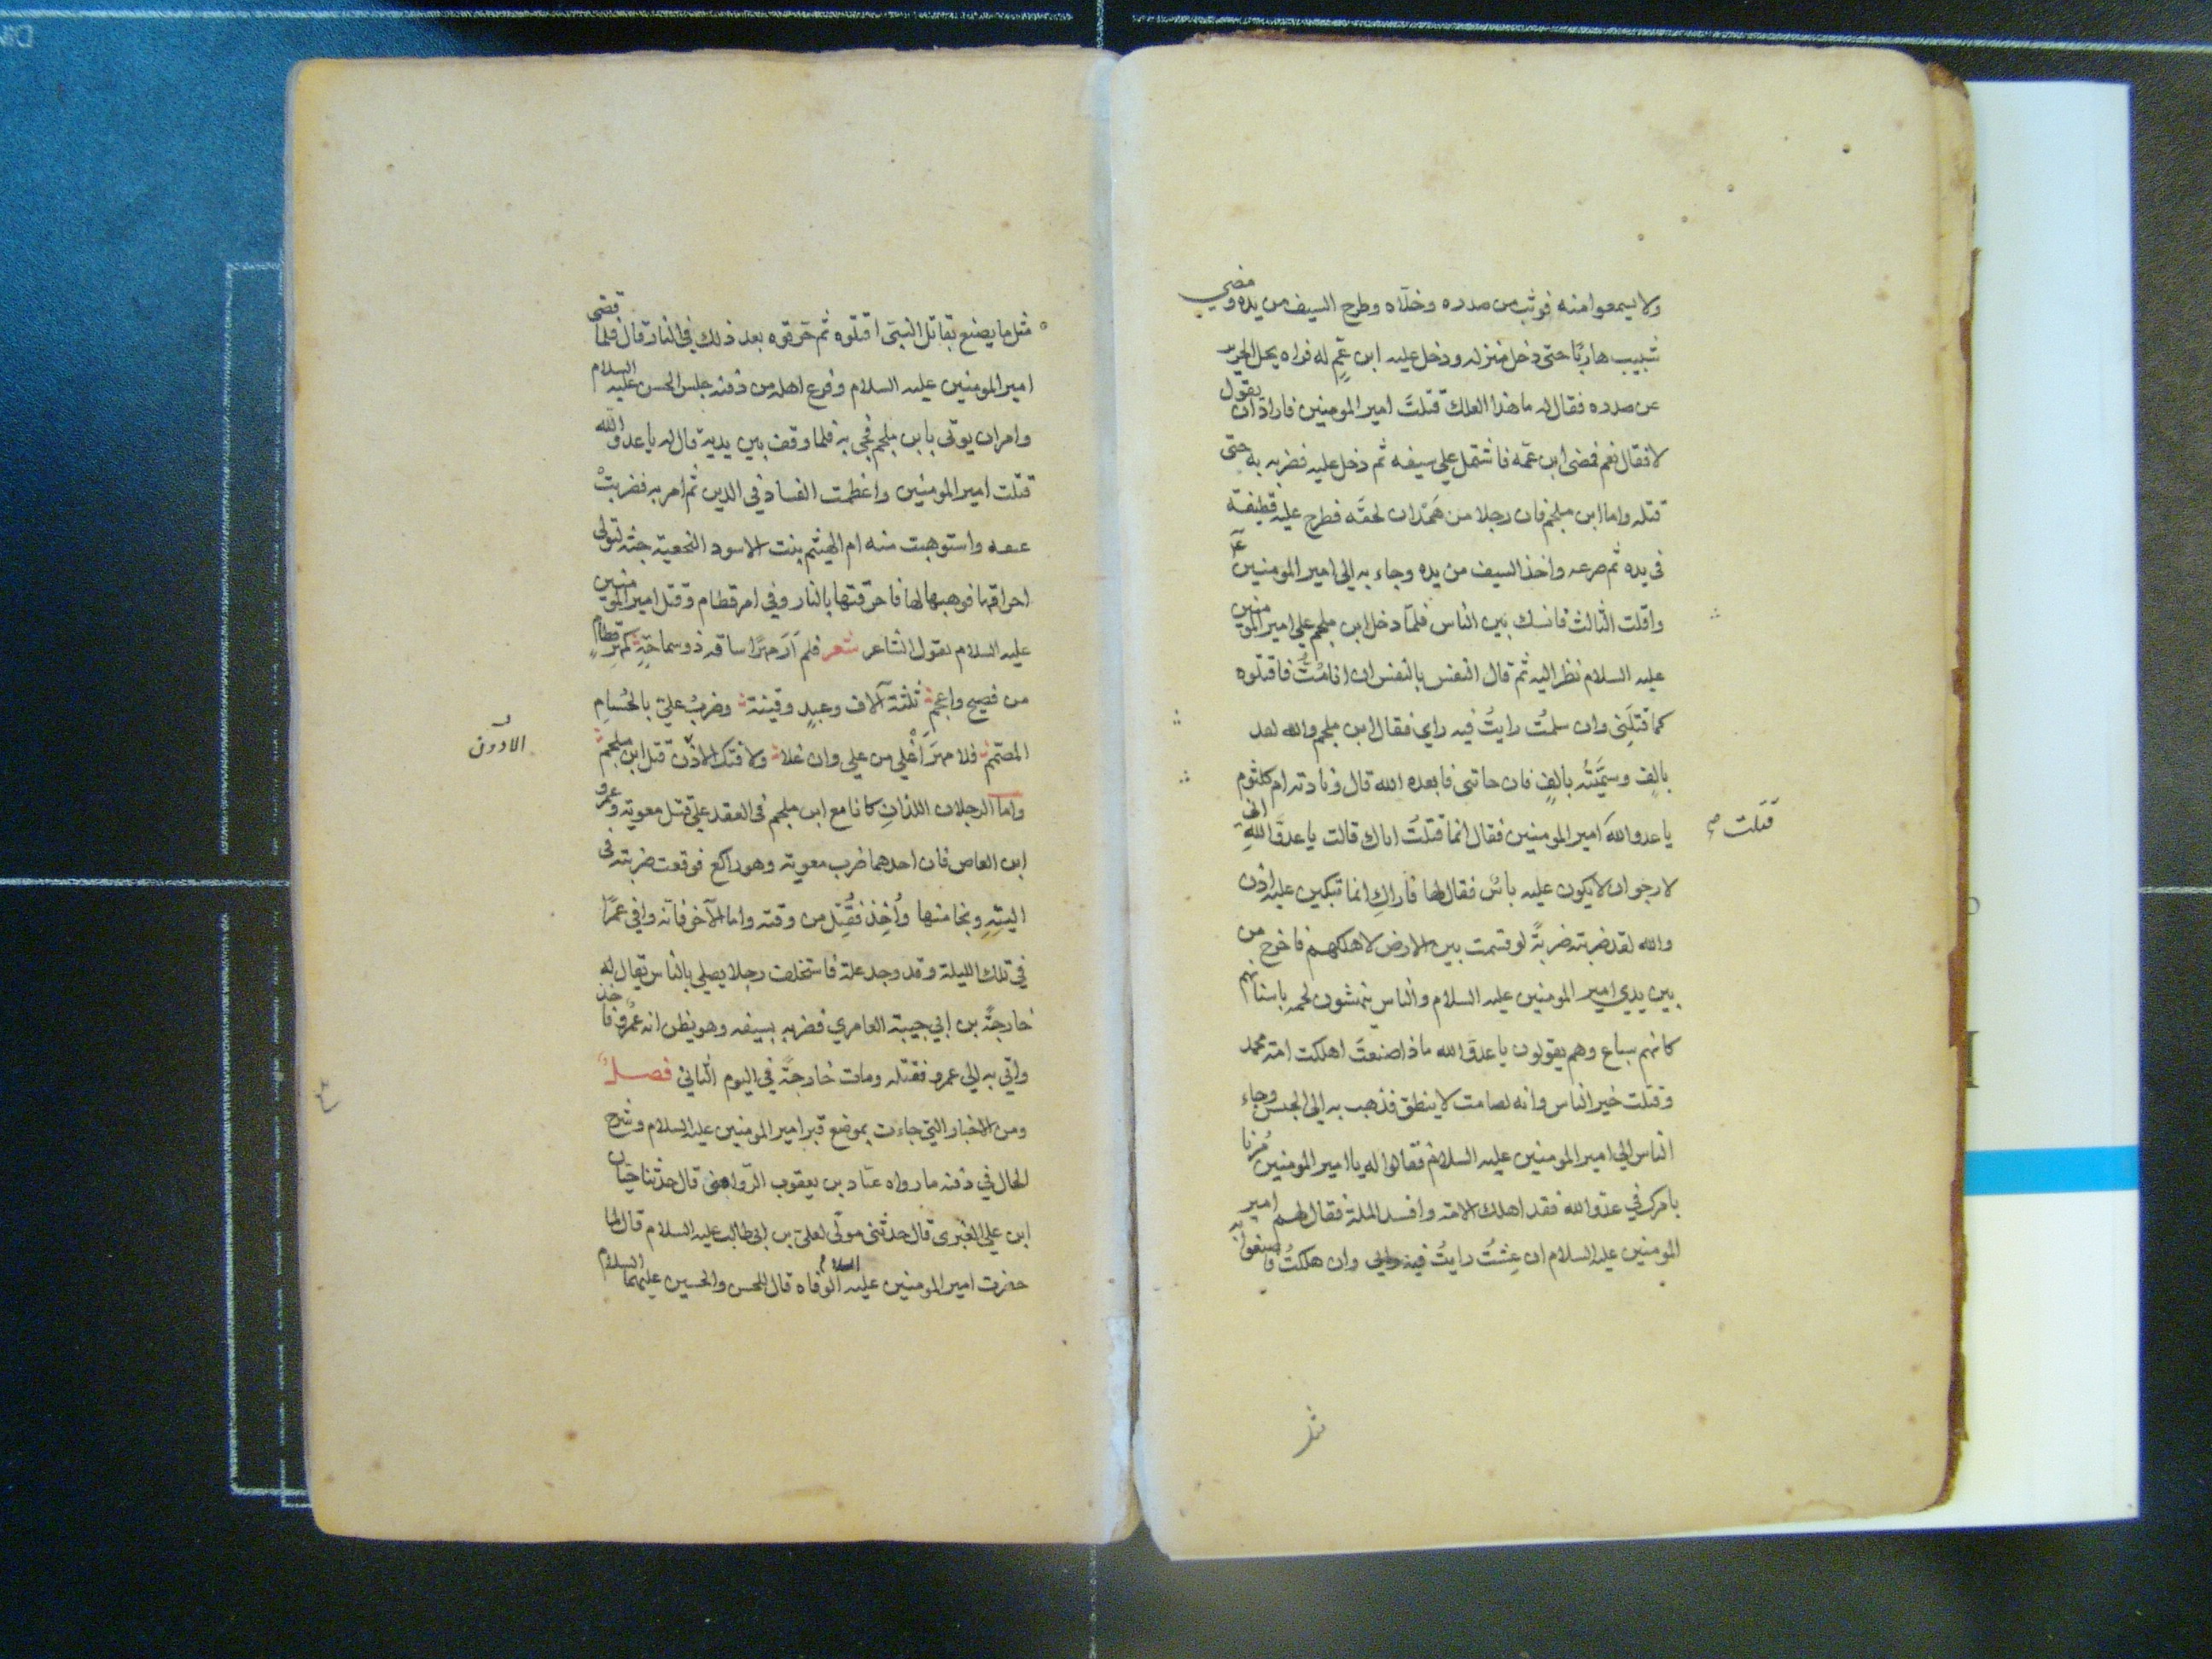 ولا يسمعوا منه فوثب من صدره وخلاه وطرح السيف من يده ومضي
شبيب هاربًا حتى دخل منزله ودخل عليه ابن عمٍ له فراه يحل الحرير
عن صدره فقال له ما هذا لعلك قتلتَ امير المومنين فاراد ان يقول
لا فقال نعم فمضى ابن عمه فاشتمل علي سيفه ثم دخل عليه فضربه به حتى
قتله واما ابن ملجم فان رجلا من همدان لحقه فطرح عليه قطيفة
في يده ثم صرعه واخذ السيف من يده وجاء به الي امير المومنين ع
وافلت الثالث فانسل بين الناس فلما دخل ابن ملجم علي امير المومنين
عليه السلام نظر اليه ثم قال النفس بالنفس ان انا مُتُّ فاقتلوه
كما قتلَني وان سلمتُ رايتُ فيه راي فقال ابن ملجم والله لقد
بالفٍ وسمَّيتُه بالفٍ فان خانني فابعده الله قال ونادته ام كلثوم
يا عدو اللهَ امير المومنين فقال انما قتلتُ اباك قالت يا عدوَّ اللهِ اني
قَتَلت صح
لارجو ان لا يكون عليه باسُ فقال لها فاراكِ انما تبكين عليَّ اذن
والله لقد ضربته ضربةً لو قسمت بين الارض لاهلكهم فاخرج من
بين يدي امير المومنين عليه السلام والناس ينهشون لحمه باسنانهم
كانهم سباع وهم يقولون يا عدوَّ الله ماذا صنعتَ اهلكت امة محمد
وقتلت خير الناس وانه لصامت لا ينطق فذهب به الي الحبس وجاء
الناس الي امير المومنين عليه السلام فقالوا له يا امير المومنين مُرنا
بامرك في عدوّ الله فقد اهلك الامة وافسد الملة فقال لهم امير
المومنين عليه السلام ان عِشتُ رايتُ فيه رايى وان هلكتُ فاصنعوا به
مثل
مثل ما يصنع بقاتل النبيّ اقتلوه ثم حرّقوه بعد ذلك في النار قال فلما قضى
امير المومنين عليه السلام وفرغ اهله من دفنه جلس الحسن عليه السلام
وامر ان يوتى بابن ملجم فجيء به فلما وقف بين يديه قال له يا عدو الله
قتلت امير المومنين واعظمت الفساد في الدين ثم امر به فضربتْ
عنقه واستوهبت منه ام الهيثم بنت الاسود النخعية جثته لتولى
احراقها فوهبها لها فاحرقتها بالنار وفي امر قطام وقتل امير المومنين
عليه السلام يقول الشاعر شعر فلم اَرَ مهرًا ساقه ذو سماحةٍ كمهرِ قطامٍ
من فصيح واعجم ثلثة آلاف وعبدٍ وقينة وضربُ عليّ بالحُسامِ
المصمّم فلا مهرَ اَغْلي من علي وان غلا ولا فتك الا دون قتل ابن ملجم
الا دون
واما الرجلان اللذانِ كانا مع ابن ملجم في العقد علي قتل معوية وعمرو
ابن العاص فان احدهما ضرب معوية وهو راكع فوقعت ضربته في
اليتِهِ ونجا منها وأُخِذ فقُتِل من وقته واما الآخر فانه وافي عمرًا
في تلك الليلة وقد وجد علة فاستخلف رجلا يصلي بالناس يقال له
خارجةُ بن ابي حبيبة العامري فضربه بسيفه وهو يظن انه عمرو فاُخذ
واُتي به الي عمرو فقتله ومات خارجةُ في اليوم الثاني فصــل
ومن الاخبار التي جاءت بموضع قبر امير المومنين عليه السلام وشرح
الحال في دفنه ما رواه عبّاد بن يعقوب الرّواجنى قال حدّثنا حبّان
ابن علي العنزى قال حدثنى مولًى لعليّ بن ابى طالب عليه السلام قال لما
حضرت امير المومنين عليه السلام الوفاه قال للحسن والحسين عليهما السلام